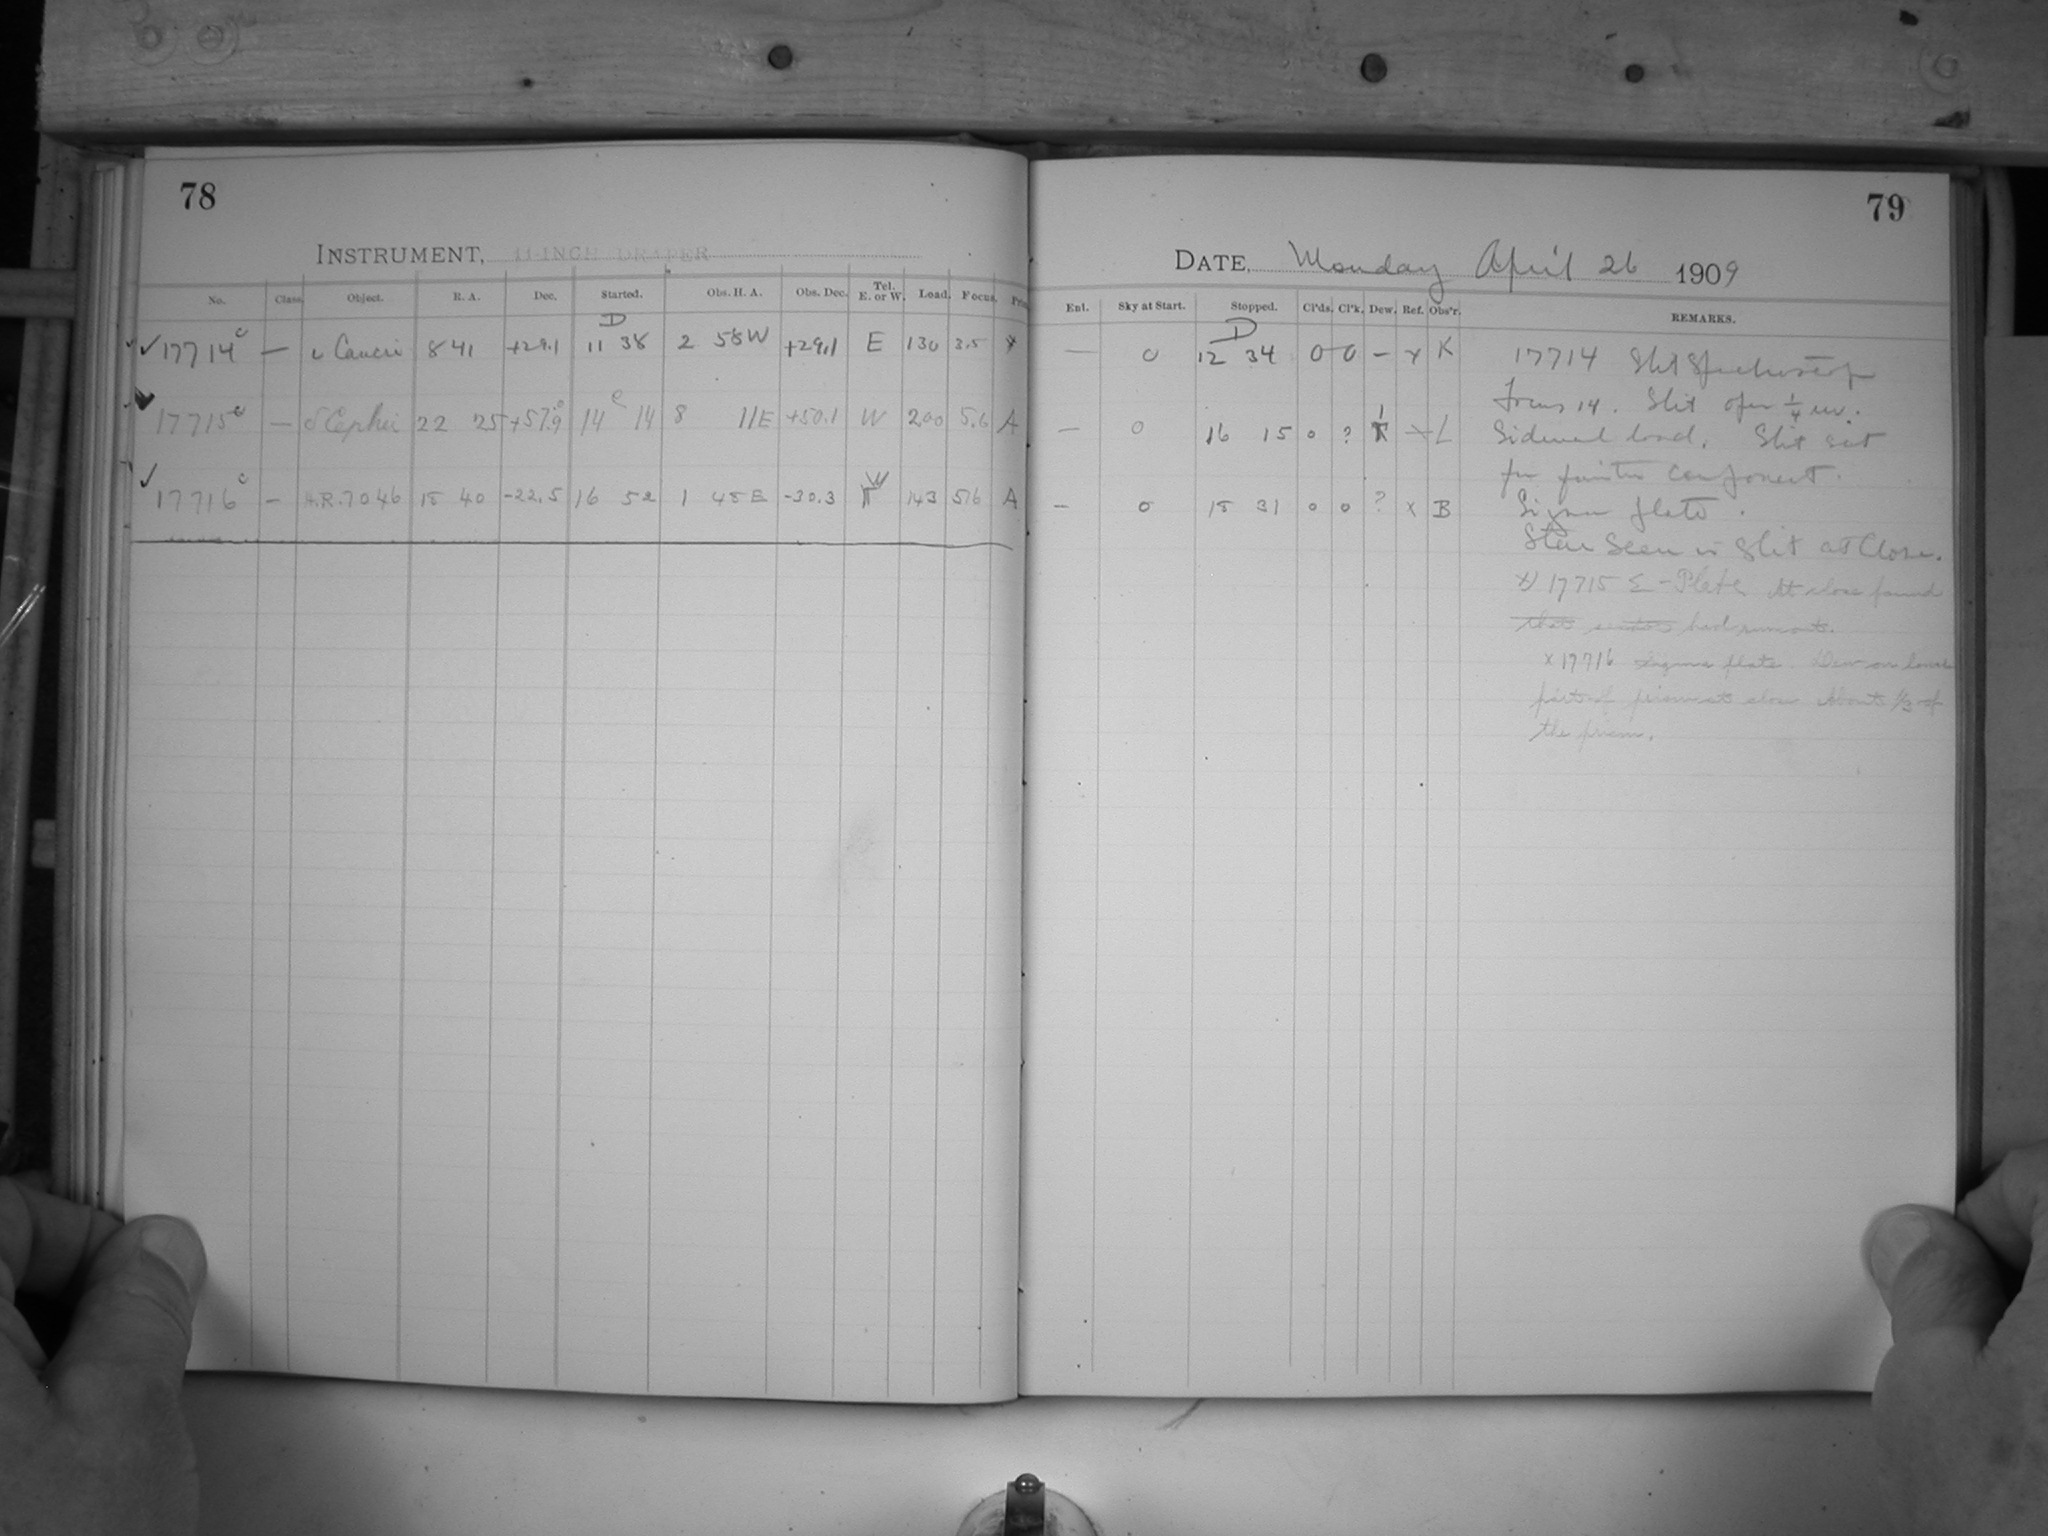 78
INSTRUMENT, 11-INCH DRAPER
No. Class. Object. R. A. Dec. Started. Obs. H. A. Obs. Dec. Tel. E. or W. Load. Focus.
D
✓ 17714 c — ι Cancri 8 41 +29.1 11 38 2 58 W +29.1 E 130 3.5 x
17715 c — δ Cephei 22 25 +57.9 14 14 8 11 E +50.1 W 200 5.6 A
✓ 17716 c — H.R. 7046 15 40 -22.5 16 52 1 45 E -30.3 W 143 5.6 A
79
DATE, Monday April 26 1909
Enl. Sky at Start. Stopped. Cl'ds. Cl'k. Dew. Ref. Obs'r. REMARKS.
D
— 0 12 34 0 0 — x K 17714 Slit Spectroscope
Focus 14. Slit open 1/4 rev.
— 0 16 15 0 ? 1 x L Sidereal load. Slit set
for fainter component.
— 0 15 31 0 0 ? x B Sigma plate.
Star seen in Slit at Close.
x) 17715 Σ-Plate. At close found
that had run out.
x 17716 Sigma plate. Dew on lower
part of prism at close about 1/3 of
the prism.